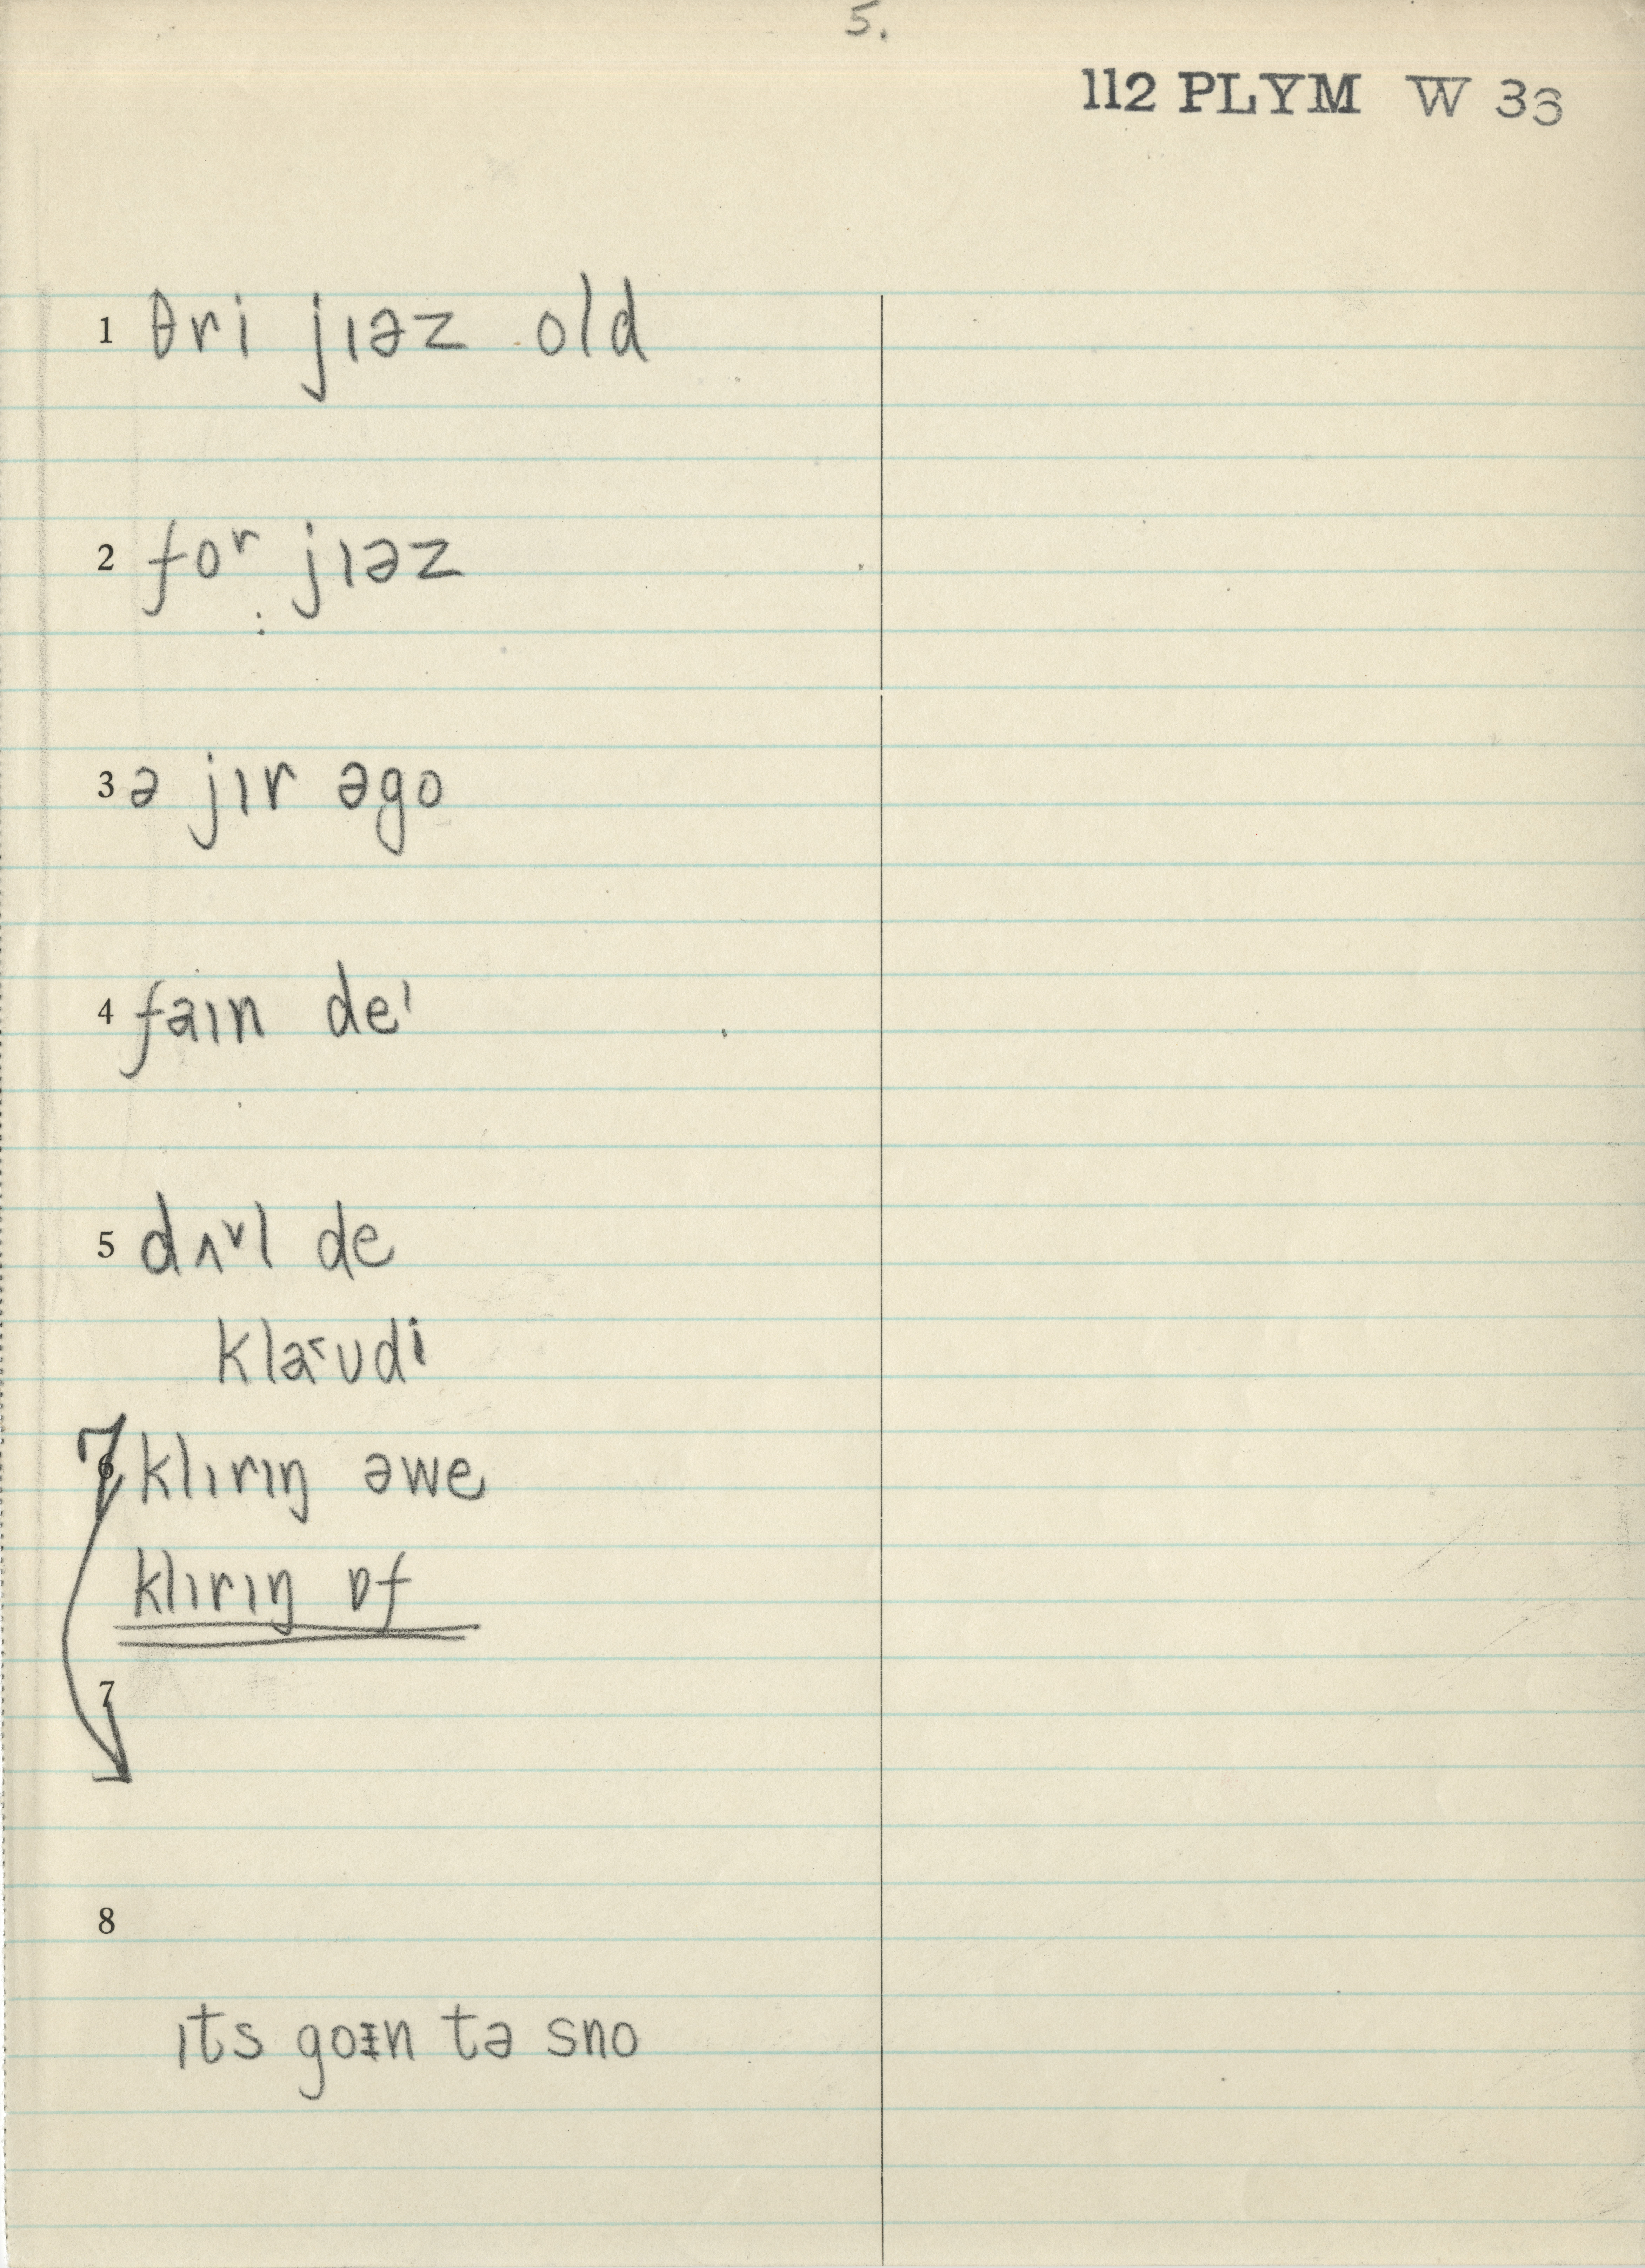 5.
112 PLYM W 33
1 θri jɪəz old
2 foʳ jɪəz
3 ə jɪr əgo
4 faɪn deᶦ
5 dʌ˅l de
kla˂ʊdi
6 7 klɪrɪŋ əwe
klɪrɪŋ ɒf
7
8
ɪts goɪn tə sno